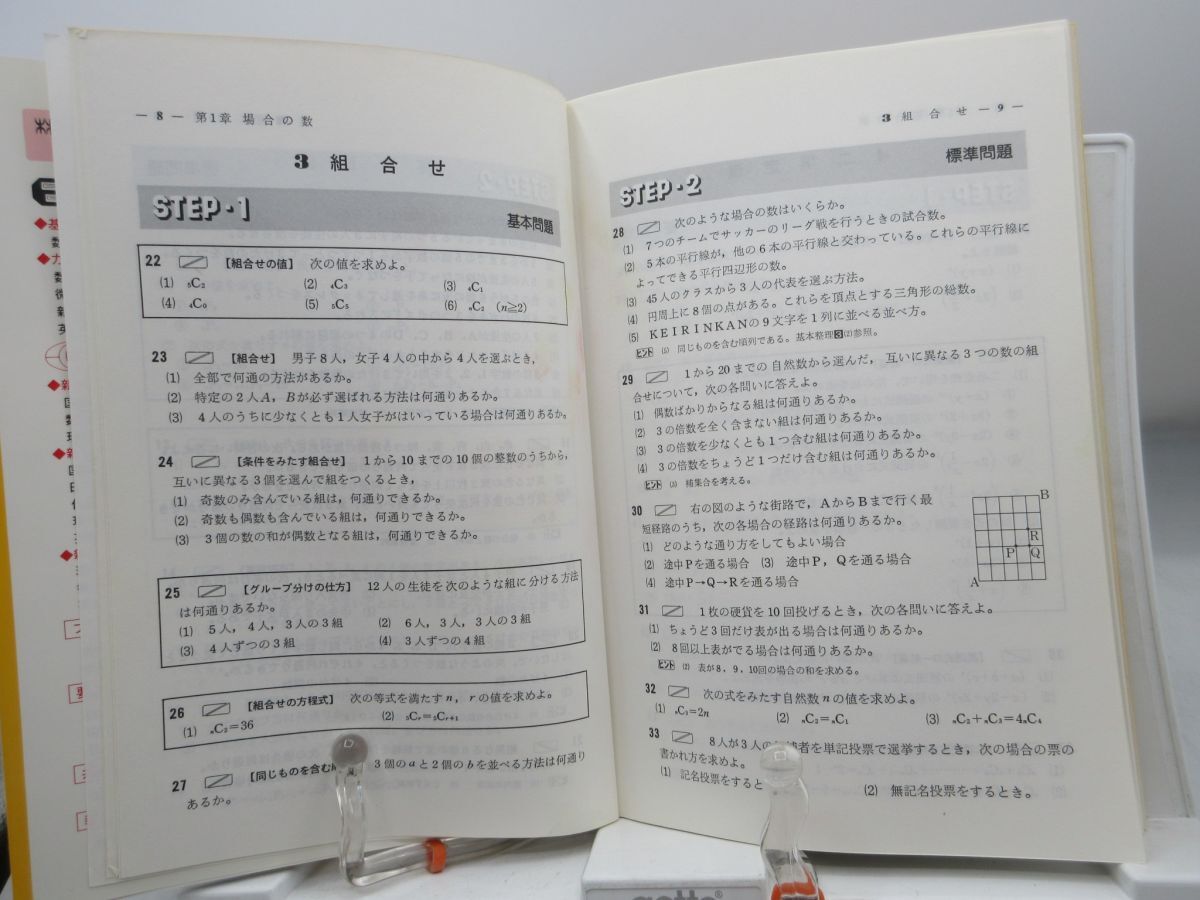 — 8 — 第1章 場合の数
3 組 合 せ
STEP・1
基本問題
22 【組合せの値】 次の値を求めよ。
(1) ₅C₂ (2) ₄C₃ (3) ₄C₁
(4) ₄C₀ (5) ₅C₅ (6) ₙC₂ (n≧2)
23 【組合せ】 男子8人，女子4人の中から4人を選ぶとき，
(1) 全部で何通の方法があるか。
(2) 特定の2人A，Bが必ず選ばれる方法は何通りあるか。
(3) 4人のうちに少なくとも1人女子がはいっている場合は何通りあるか。
24 【条件をみたす組合せ】 1から10までの10個の整数のうちから，
互いに異なる3個を選んで組をつくるとき，
(1) 奇数のみ含んでいる組は，何通りできるか。
(2) 奇数も偶数も含んでいる組は，何通りできるか。
(3) 3個の数の和が偶数となる組は，何通りできるか。
25 【グループ分けの仕方】 12人の生徒を次のような組に分ける方法
は何通りあるか。
(1) 5人，4人，3人の3組 (2) 6人，3人，3人の3組
(3) 4人ずつの3組 (4) 3人ずつの4組
26 【組合せの方程式】 次の等式を満たすn，rの値を求めよ。
(1) ₙC₂=36 (2) ₅Cᵣ=₅Cᵣ₊₁
27 【同じものを含む 3個のaと2個のbを並べる方法は何通り
あるか。
3 組 合 せ — 9 —
STEP・2
標準問題
28 次のような場合の数はいくらか。
(1) 7つのチームでサッカーのリーグ戦を行うときの試合数。
(2) 5本の平行線が，他の6本の平行線と交わっている。これらの平行線に
よってできる平行四辺形の数。
(3) 45人のクラスから3人の代表を選ぶ方法。
(4) 円周上に8個の点がある。これらを頂点とする三角形の総数。
(5) KEIRINKANの9文字を1列に並べる並べ方。
ヒント (5) 同じものを含む順列である。基本整理3(2)参照。
29 1から20までの自然数から選んだ，互いに異なる3つの数の組
合せについて，次の各問いに答えよ。
(1) 偶数ばかりからなる組は何通りあるか。
(2) 3の倍数を全く含まない組は何通りあるか。
(3) 3の倍数を少なくとも1つ含む組は何通りあるか。
(4) 3の倍数をちょうど1つだけ含む組は何通りあるか。
ヒント (3) 補集合を考える。
30 右の図のような街路で，AからBまで行く最
短経路のうち，次の各場合の経路は何通りあるか。
(1) どのような通り方をしてもよい場合
(2) 途中Pを通る場合 (3) 途中P，Qを通る場合
(4) 途中P→Q→Rを通る場合
B
R
P Q
A
31 1枚の硬貨を10回投げるとき，次の各問いに答えよ。
(1) ちょうど3回だけ表が出る場合は何通りあるか。
(2) 8回以上表がでる場合は何通りあるか。
ヒント (2) 表が8，9，10回の場合の和を求める。
32 次の式をみたす自然数nの値を求めよ。
(1) ₙC₃=2n (2) ₙC₂=ₙC₁ (3) ₙC₂+ₙC₃=4ₙC₄
33 8人が3人の 者を単記投票で選挙するとき，次の場合の票の
書かれ方を求めよ。
(1) 記名投票をすると (2) 無記名投票をするとき。